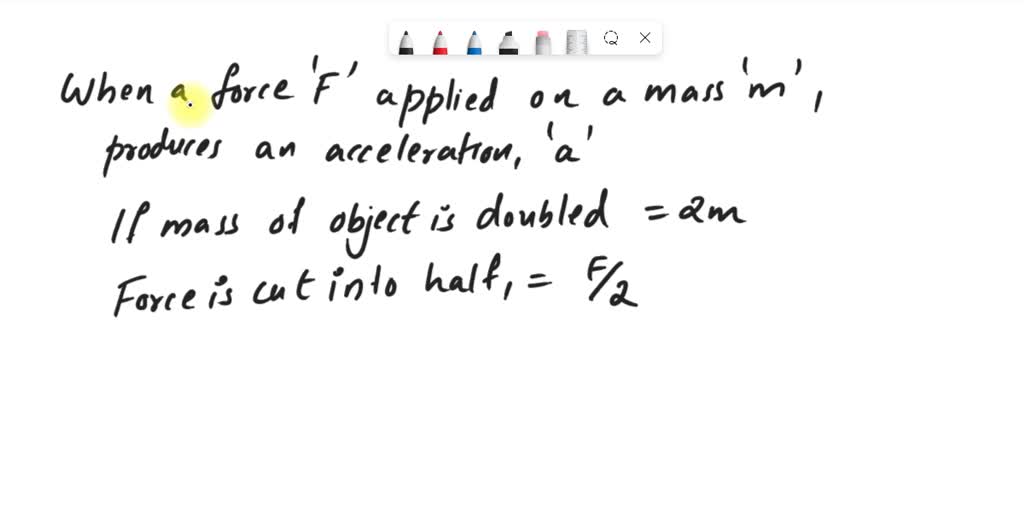 When a force 'F' applied on a mass 'm',
produces an acceleration, 'a'
If mass of object is doubled = 2m
Force is cut into half, = F/2